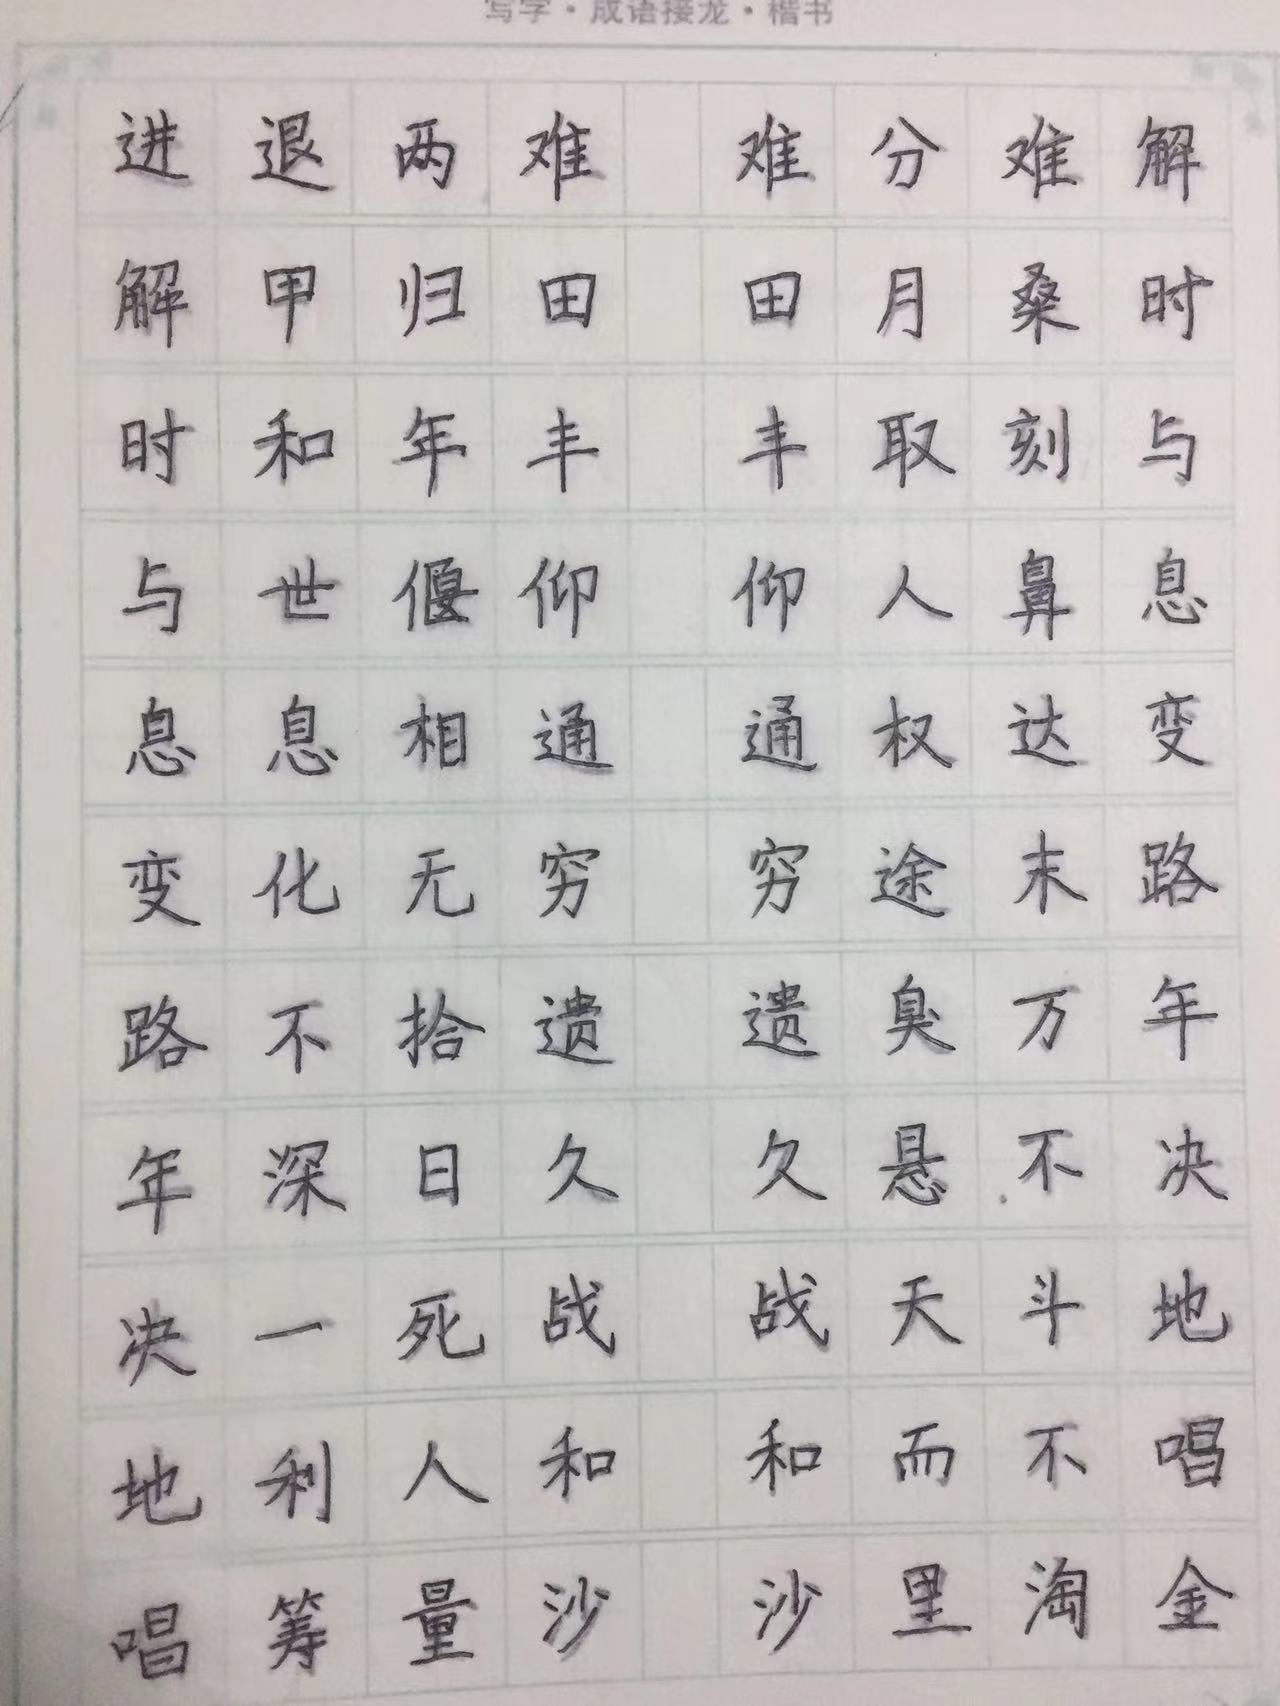 写字·成语接龙·楷书
进退两难 难分难解
解甲归田 田月桑时
时和年丰 丰取刻与
与世偃仰 仰人鼻息
息息相通 通权达变
变化无穷 穷途末路
路不拾遗 遗臭万年
年深日久 久悬不决
决一死战 战天斗地
地利人和 和而不唱
唱筹量沙 沙里淘金